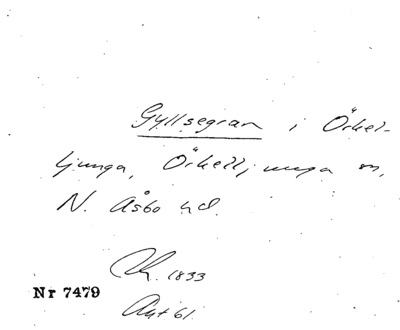 Gyllsegran i Örkel-
ljunga, Örkelljunga sn,
N. Åsbo hd.
1833
Nr 7479
Akt 61.